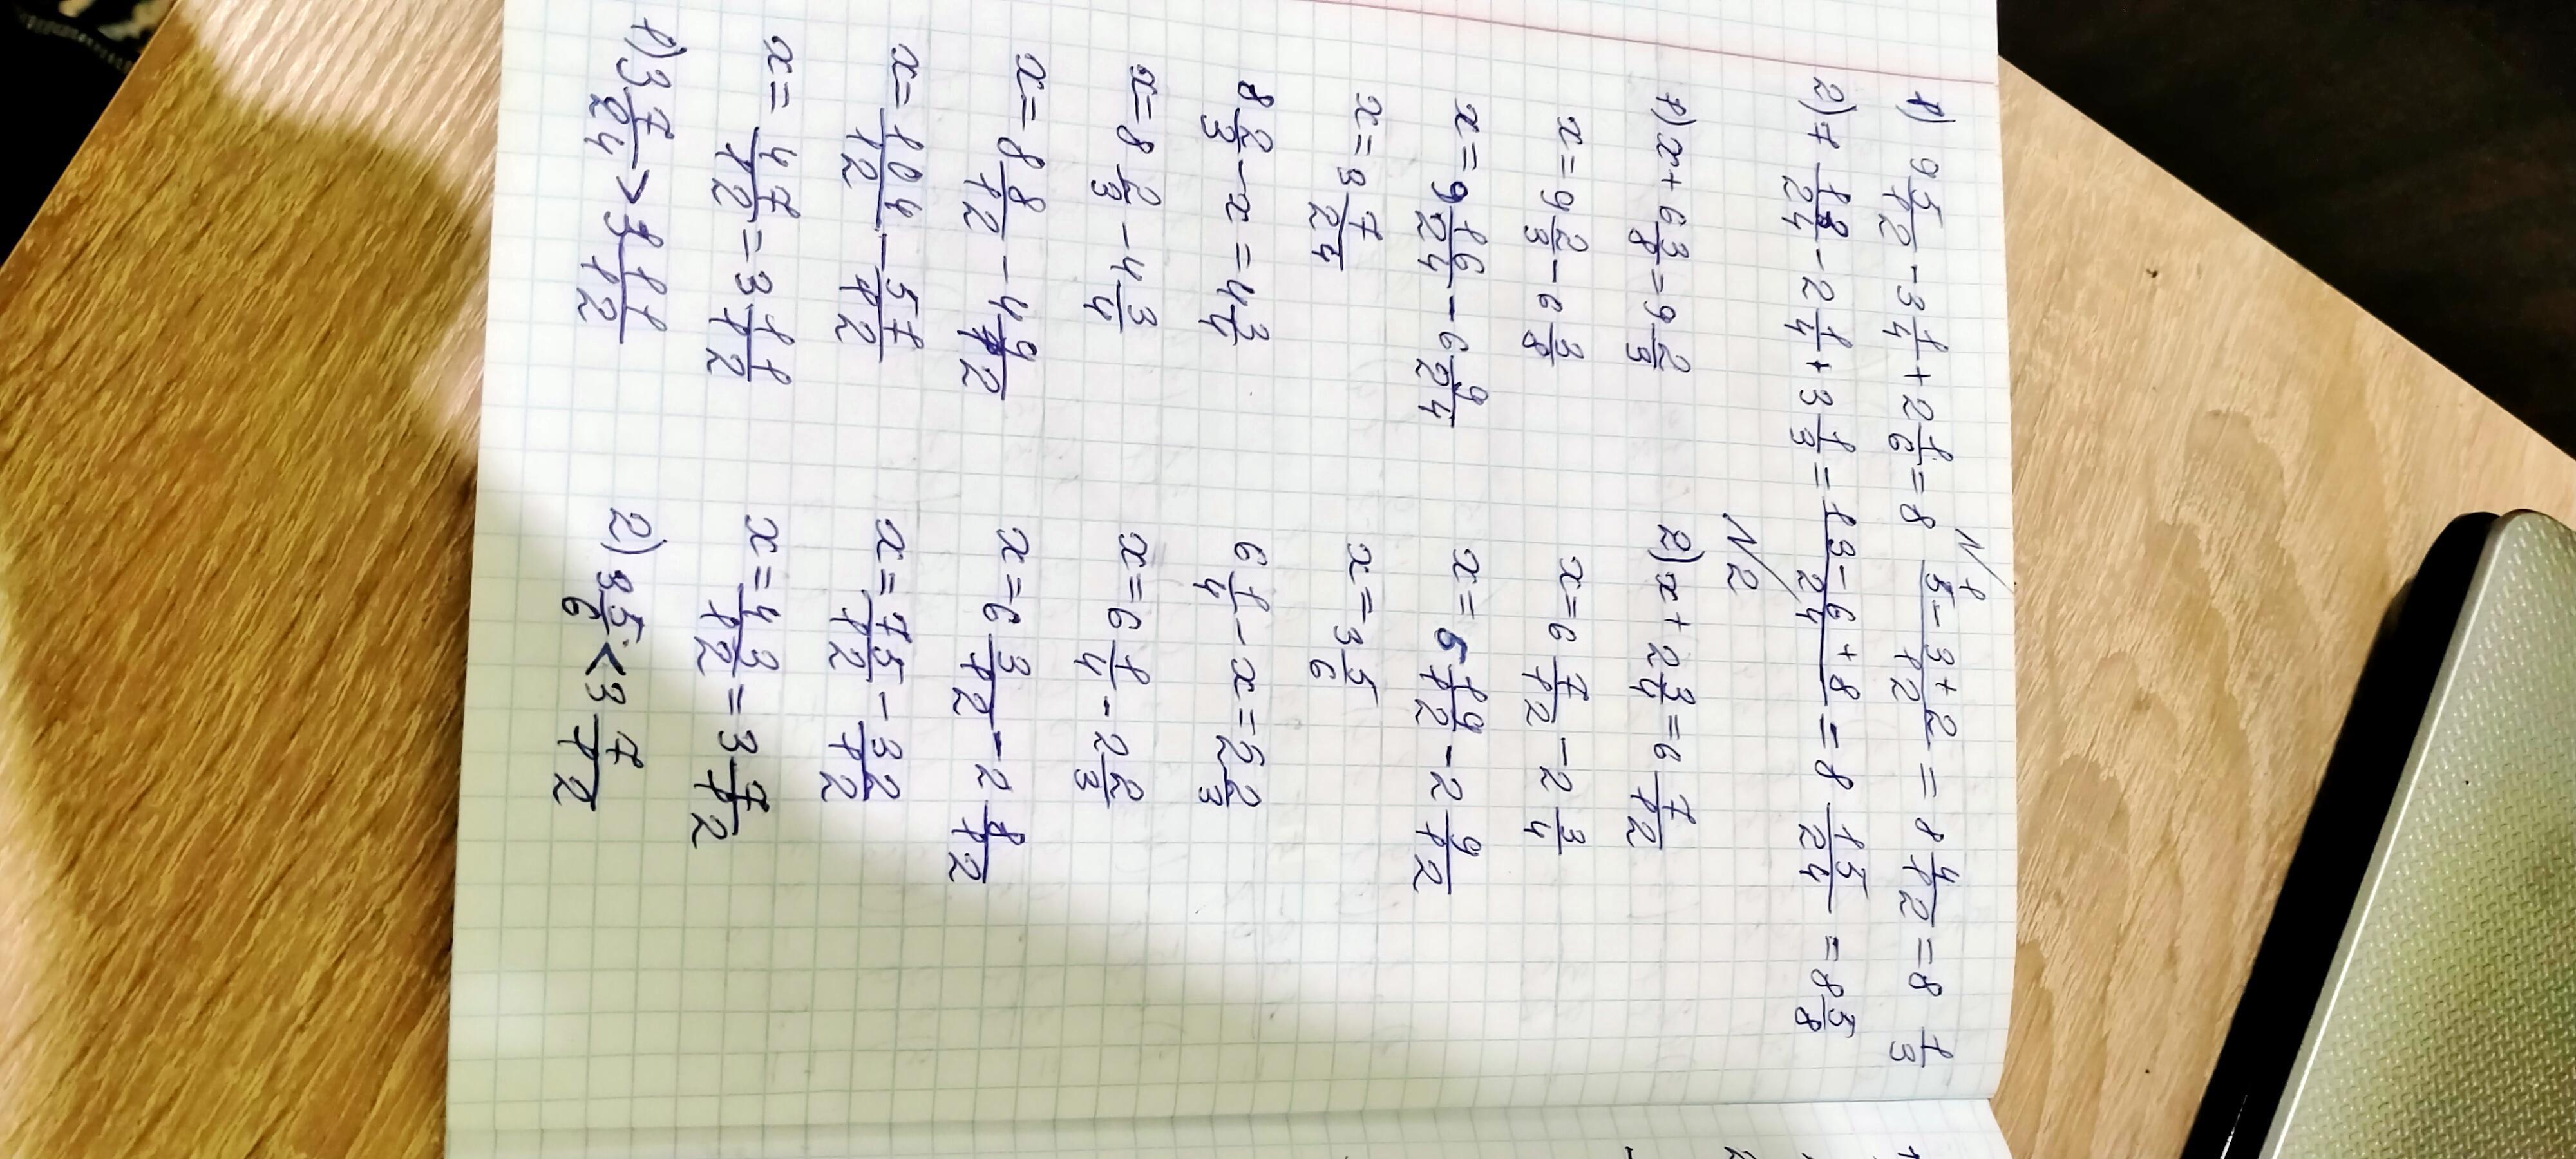 N1
1) 9 5/12 - 3 1/4 + 2 1/6 = 8 (5-3+2)/12 = 8 4/12 = 8 1/3
2) 7 13/24 - 2 1/4 + 3 1/3 = (13-6+8)/24 = 8 15/24 = 8 5/8
N2
1) x + 6 3/8 = 9 2/3
x = 9 2/3 - 6 3/8
x = 9 16/24 - 6 9/24
x = 3 7/24
8 2/3 - x = 4 3/4
x = 8 2/3 - 4 3/4
x = 8 8/12 - 4 9/12
x = 104/12 - 57/12
x = 47/12 = 3 11/12
1) 3 7/24 > 3 11/12
2) x + 2 3/4 = 6 7/12
x = 6 7/12 - 2 3/4
x = 5 19/12 - 2 9/12
x = 3 5/6
6 1/4 - x = 2 2/3
x = 6 1/4 - 2 2/3
x = 6 3/12 - 2 8/12
x = 75/12 - 32/12
x = 43/12 = 3 7/12
2) 3 5/6 < 3 7/12